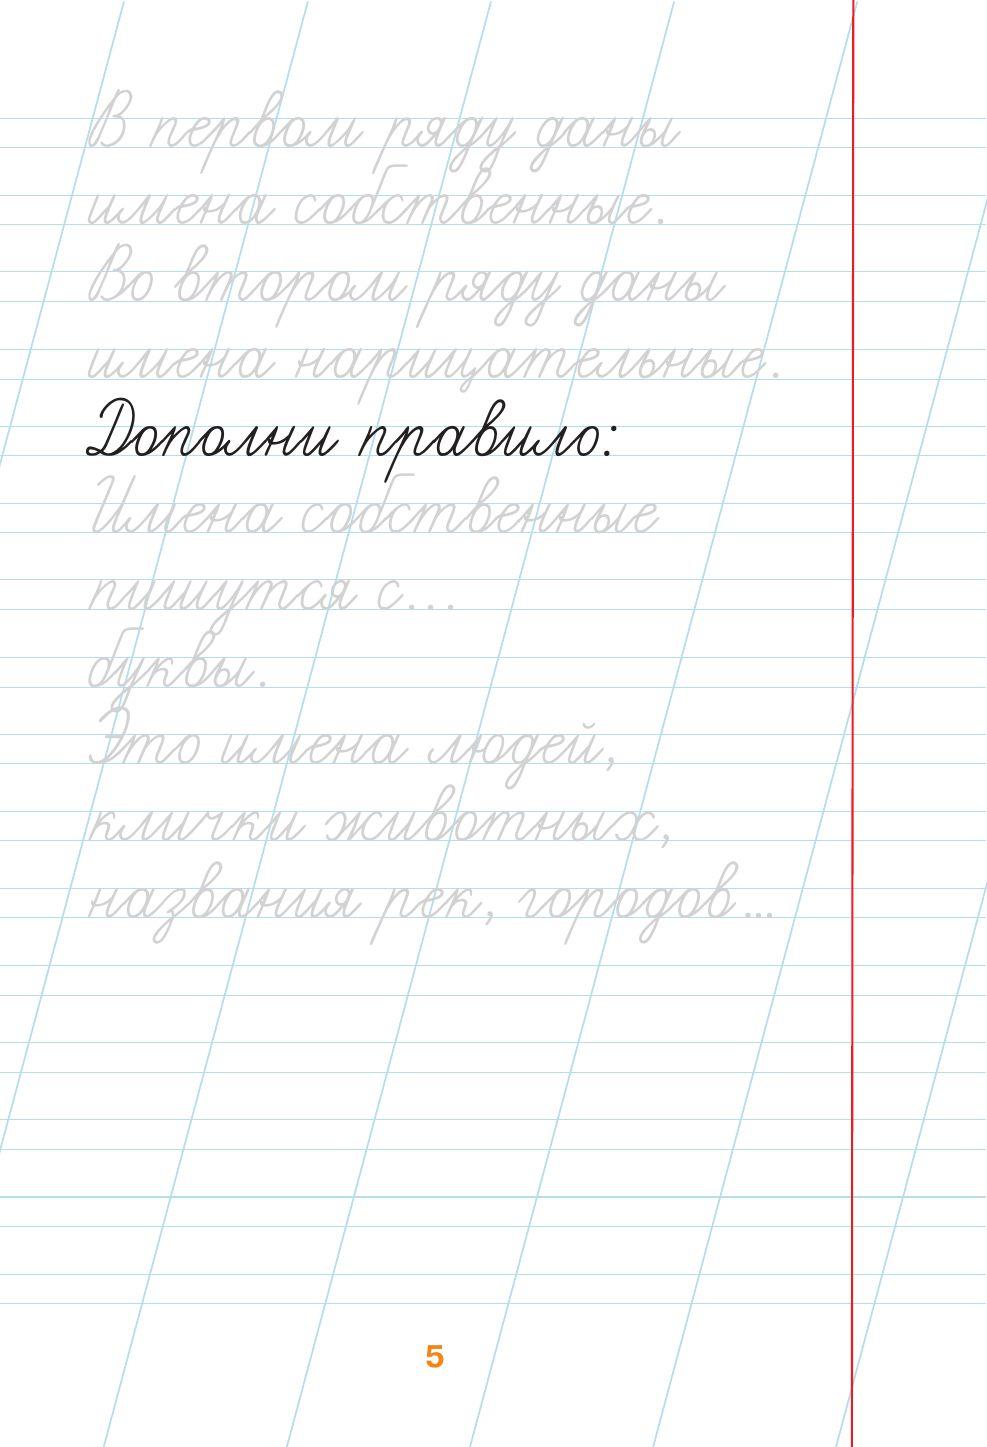 В первом ряду даны
имена собственные.
Во втором ряду даны
имена нарицательные.
Дополни правило:
Имена собственные
пишутся с...
буквы.
Это имена людей,
клички животных,
названия рек, городов...
5